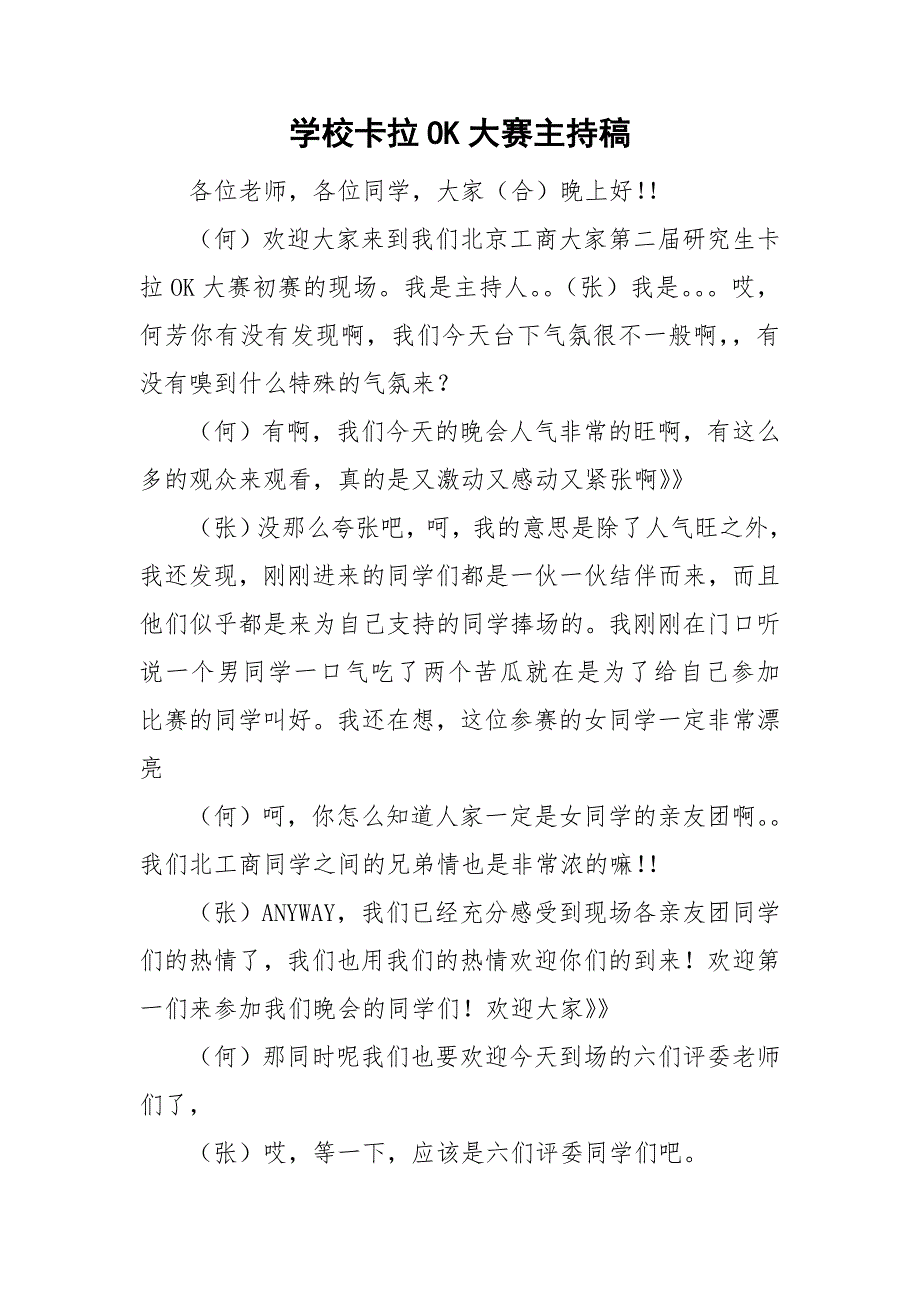 学校卡拉OK大赛主持稿
各位老师，各位同学，大家（合）晚上好！！
（何）欢迎大家来到我们北京工商大家第二届研究生卡
拉OK大赛初赛的现场。我是主持人。。（张）我是。。。哎，
何芳你有没有发现啊，我们今天台下气氛很不一般啊，，有
没有嗅到什么特殊的气氛来？
（何）有啊，我们今天的晚会人气非常的旺啊，有这么
多的观众来观看，真的是又激动又感动又紧张啊》》
（张）没那么夸张吧，呵，我的意思是除了人气旺之外，
我还发现，刚刚进来的同学们都是一伙一伙结伴而来，而且
他们似乎都是来为自己支持的同学捧场的。我刚刚在门口听
说一个男同学一口气吃了两个苦瓜就在是为了给自己参加
比赛的同学叫好。我还在想，这位参赛的女同学一定非常漂
亮
（何）呵，你怎么知道人家一定是女同学的亲友团啊。。
我们北工商同学之间的兄弟情也是非常浓的嘛！！
（张）ANYWAY，我们已经充分感受到现场各亲友团同学
们的热情了，我们也用我们的热情欢迎你们的到来！欢迎第
一们来参加我们晚会的同学们！欢迎大家》》
（何）那同时呢我们也要欢迎今天到场的六们评委老师
们了，
（张）哎，等一下，应该是六们评委同学们吧。